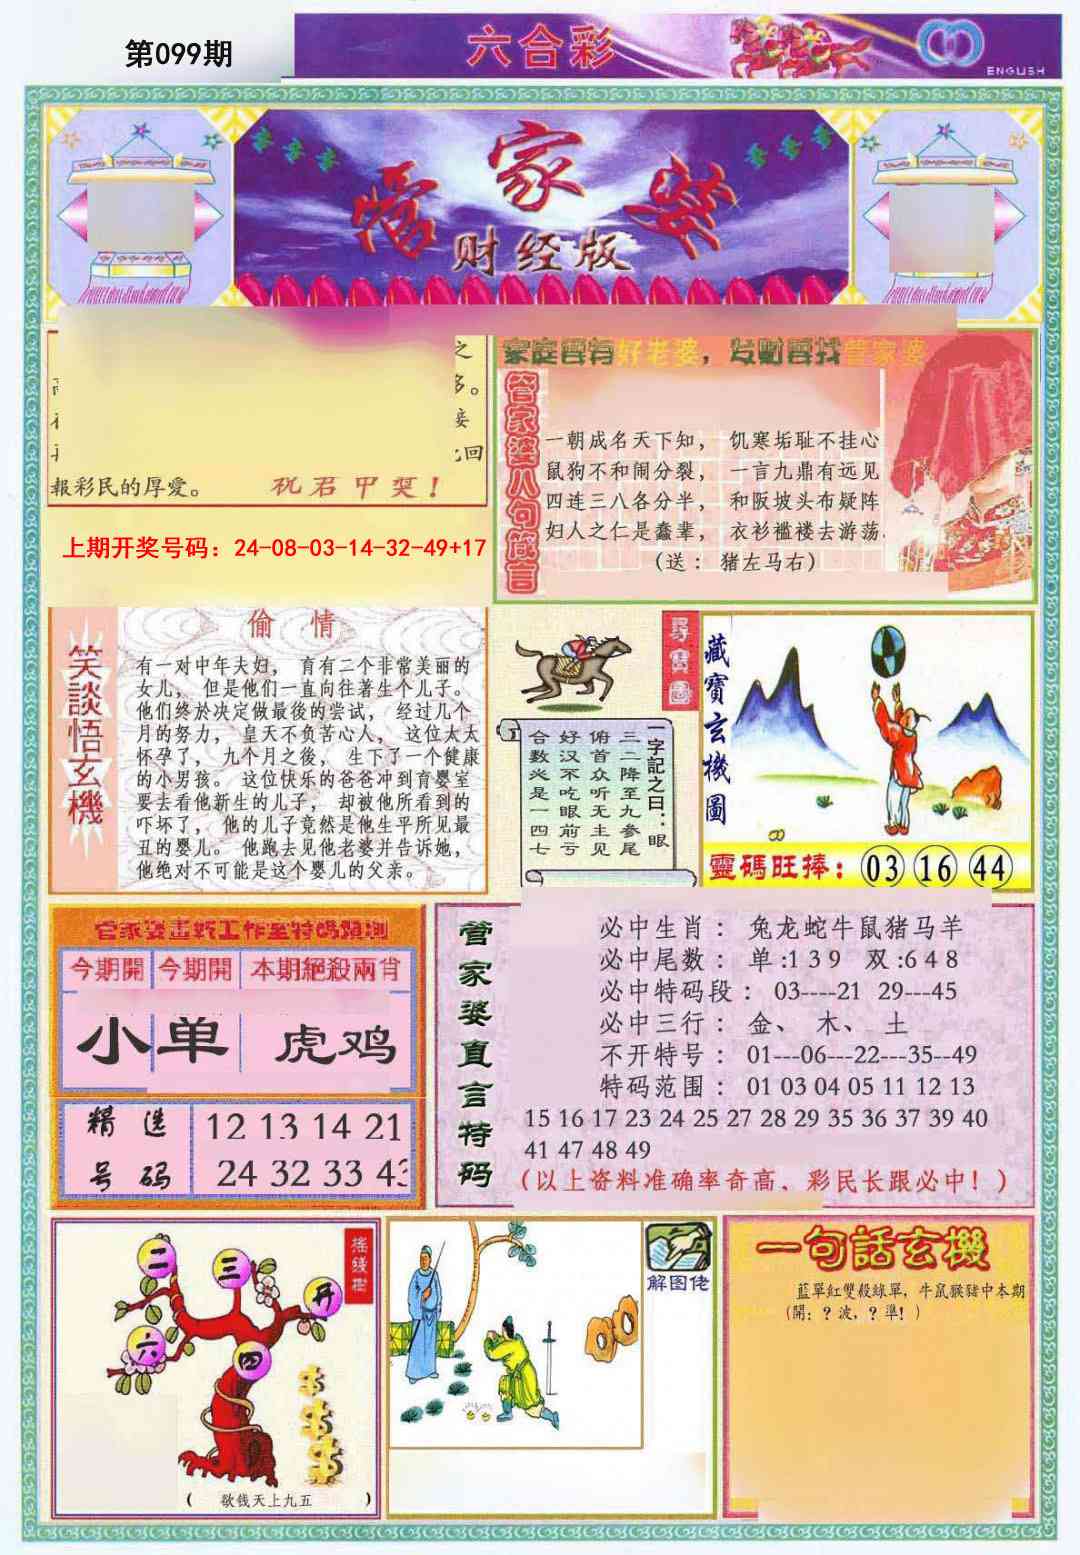 第099期
六合彩
ENGLISH
管家婆
财经版
之
多。
接
回
報彩民的厚愛。 祝君中奖!
上期开奖号码：24-08-03-14-32-49+17
家庭需有好老婆，发财需找管家婆
管家婆八句箴言
一朝成名天下知， 饥寒垢耻不挂心
鼠狗不和闹分裂， 一言九鼎有远见
四连三八各分半， 和阪坡头布疑阵
妇人之仁是蠢辈， 衣衫褴褛去游荡.
(送： 猪左马右)
笑談悟玄機
偷 情
有一对中年夫妇， 育有二个非常美丽的
女儿， 但是他们一直向往著生个儿子。
他们终於决定做最後的尝试， 经过几个
月的努力， 皇天不负苦心人， 这位太太
怀孕了， 九个月之後， 生下了一个健康
的小男孩。 这位快乐的爸爸冲到育婴室
要去看他新生的儿子， 却被他所看到的
吓坏了， 他的儿子竟然是他生平所见最
丑的婴儿。 他跑去见他老婆并告诉她，
他绝对不可能是这个婴儿的父亲。
尋寶圖
一字記之曰：眼
三二降至九参尾
俯首众听无主见
好汉不吃眼前亏
合數必是一四七
藏寶玄機圖
靈碼旺捧：03 16 44
管家婆畫乾工作室特碼預測
今期開 今期開 本期絕殺兩肖
小 单 虎鸡
精选号码
12 13 14 21
24 32 33 43
管家婆直言特码
必中生肖： 兔龙蛇牛鼠猪马羊
必中尾数： 单:1 3 9 双:6 4 8
必中特码段： 03----21 29---45
必中三行： 金、 木、 土
不开特号： 01---06---22---35--49
特码范围： 01 03 04 05 11 12 13
15 16 17 23 24 25 27 28 29 35 36 37 39 40
41 47 48 49
(以上资料准确率奇高、彩民长跟必中!)
搖錢樹
二
三
开
六
四
( 欲钱天上九五 )
解图佬
一句話玄機
藍單紅雙殺綠單，牛鼠猴豬中本期
(開：？波，？準!)